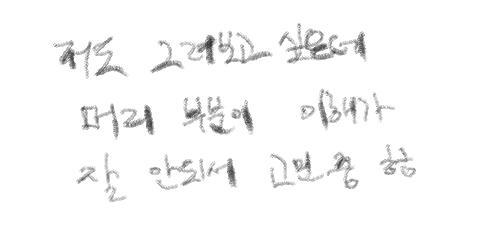 저도 그려보고 싶은데
머리 부분이 이해가
잘 안되서 고민중 힝